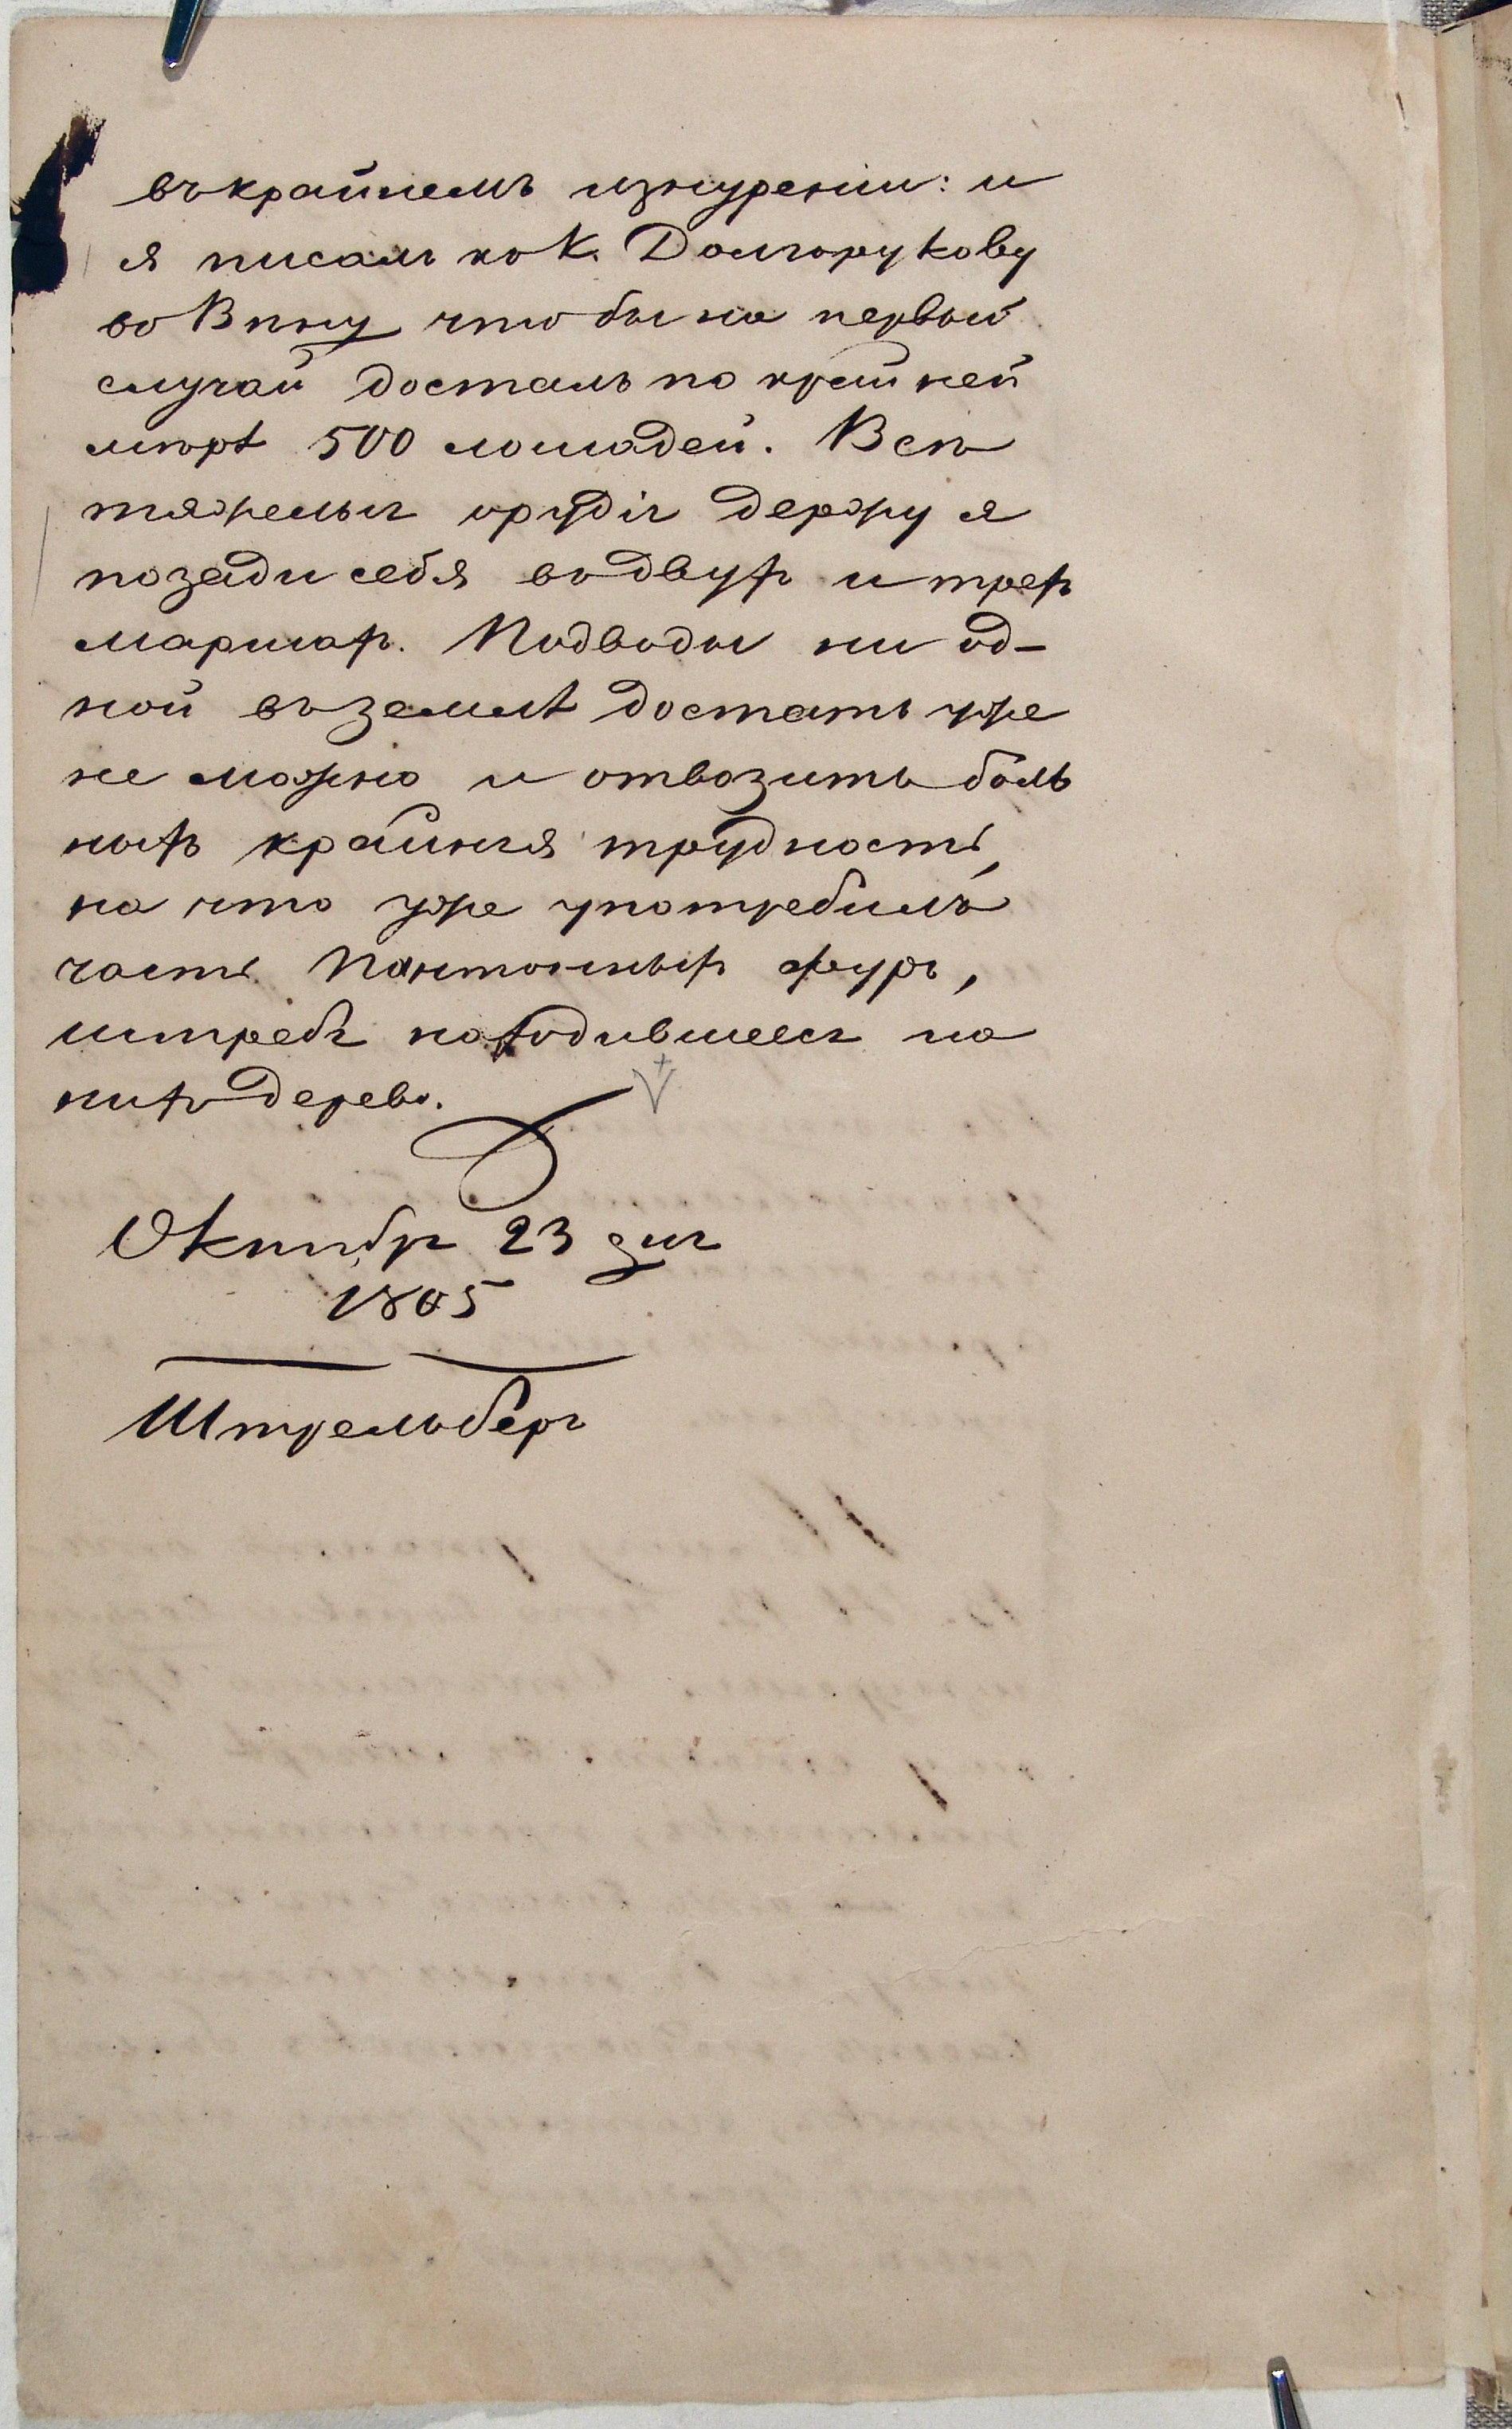 въ крайнемъ изнуренiи: и
я писалъ ко К. Долгорукову
во Вѣну что бы на первый
случай досталъ по крайней
мѣрѣ 500 лошадей. Всѣ
тяжелыя орудiя держу я
позади себя въ двухъ и трехъ
маршахъ. Подводы ни од-
ной въ землѣ достать уже
не можно и отвозить боль
ныхъ крайняя трудность,
на что уже употребилъ
часть Понтонныхъ фуръ,
истребя находившееся на
нихъ дерево.
Октября 23 дня
1805
Штрельбергъ